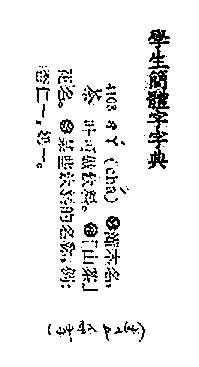 學生簡體字字典
4103 ㄔㄚˊ (chá) ❶灌木名,
茶 叶可做飲料。❷「山茶」
花名。❸某些飲料的名称,例:
杏仁~,奶~。